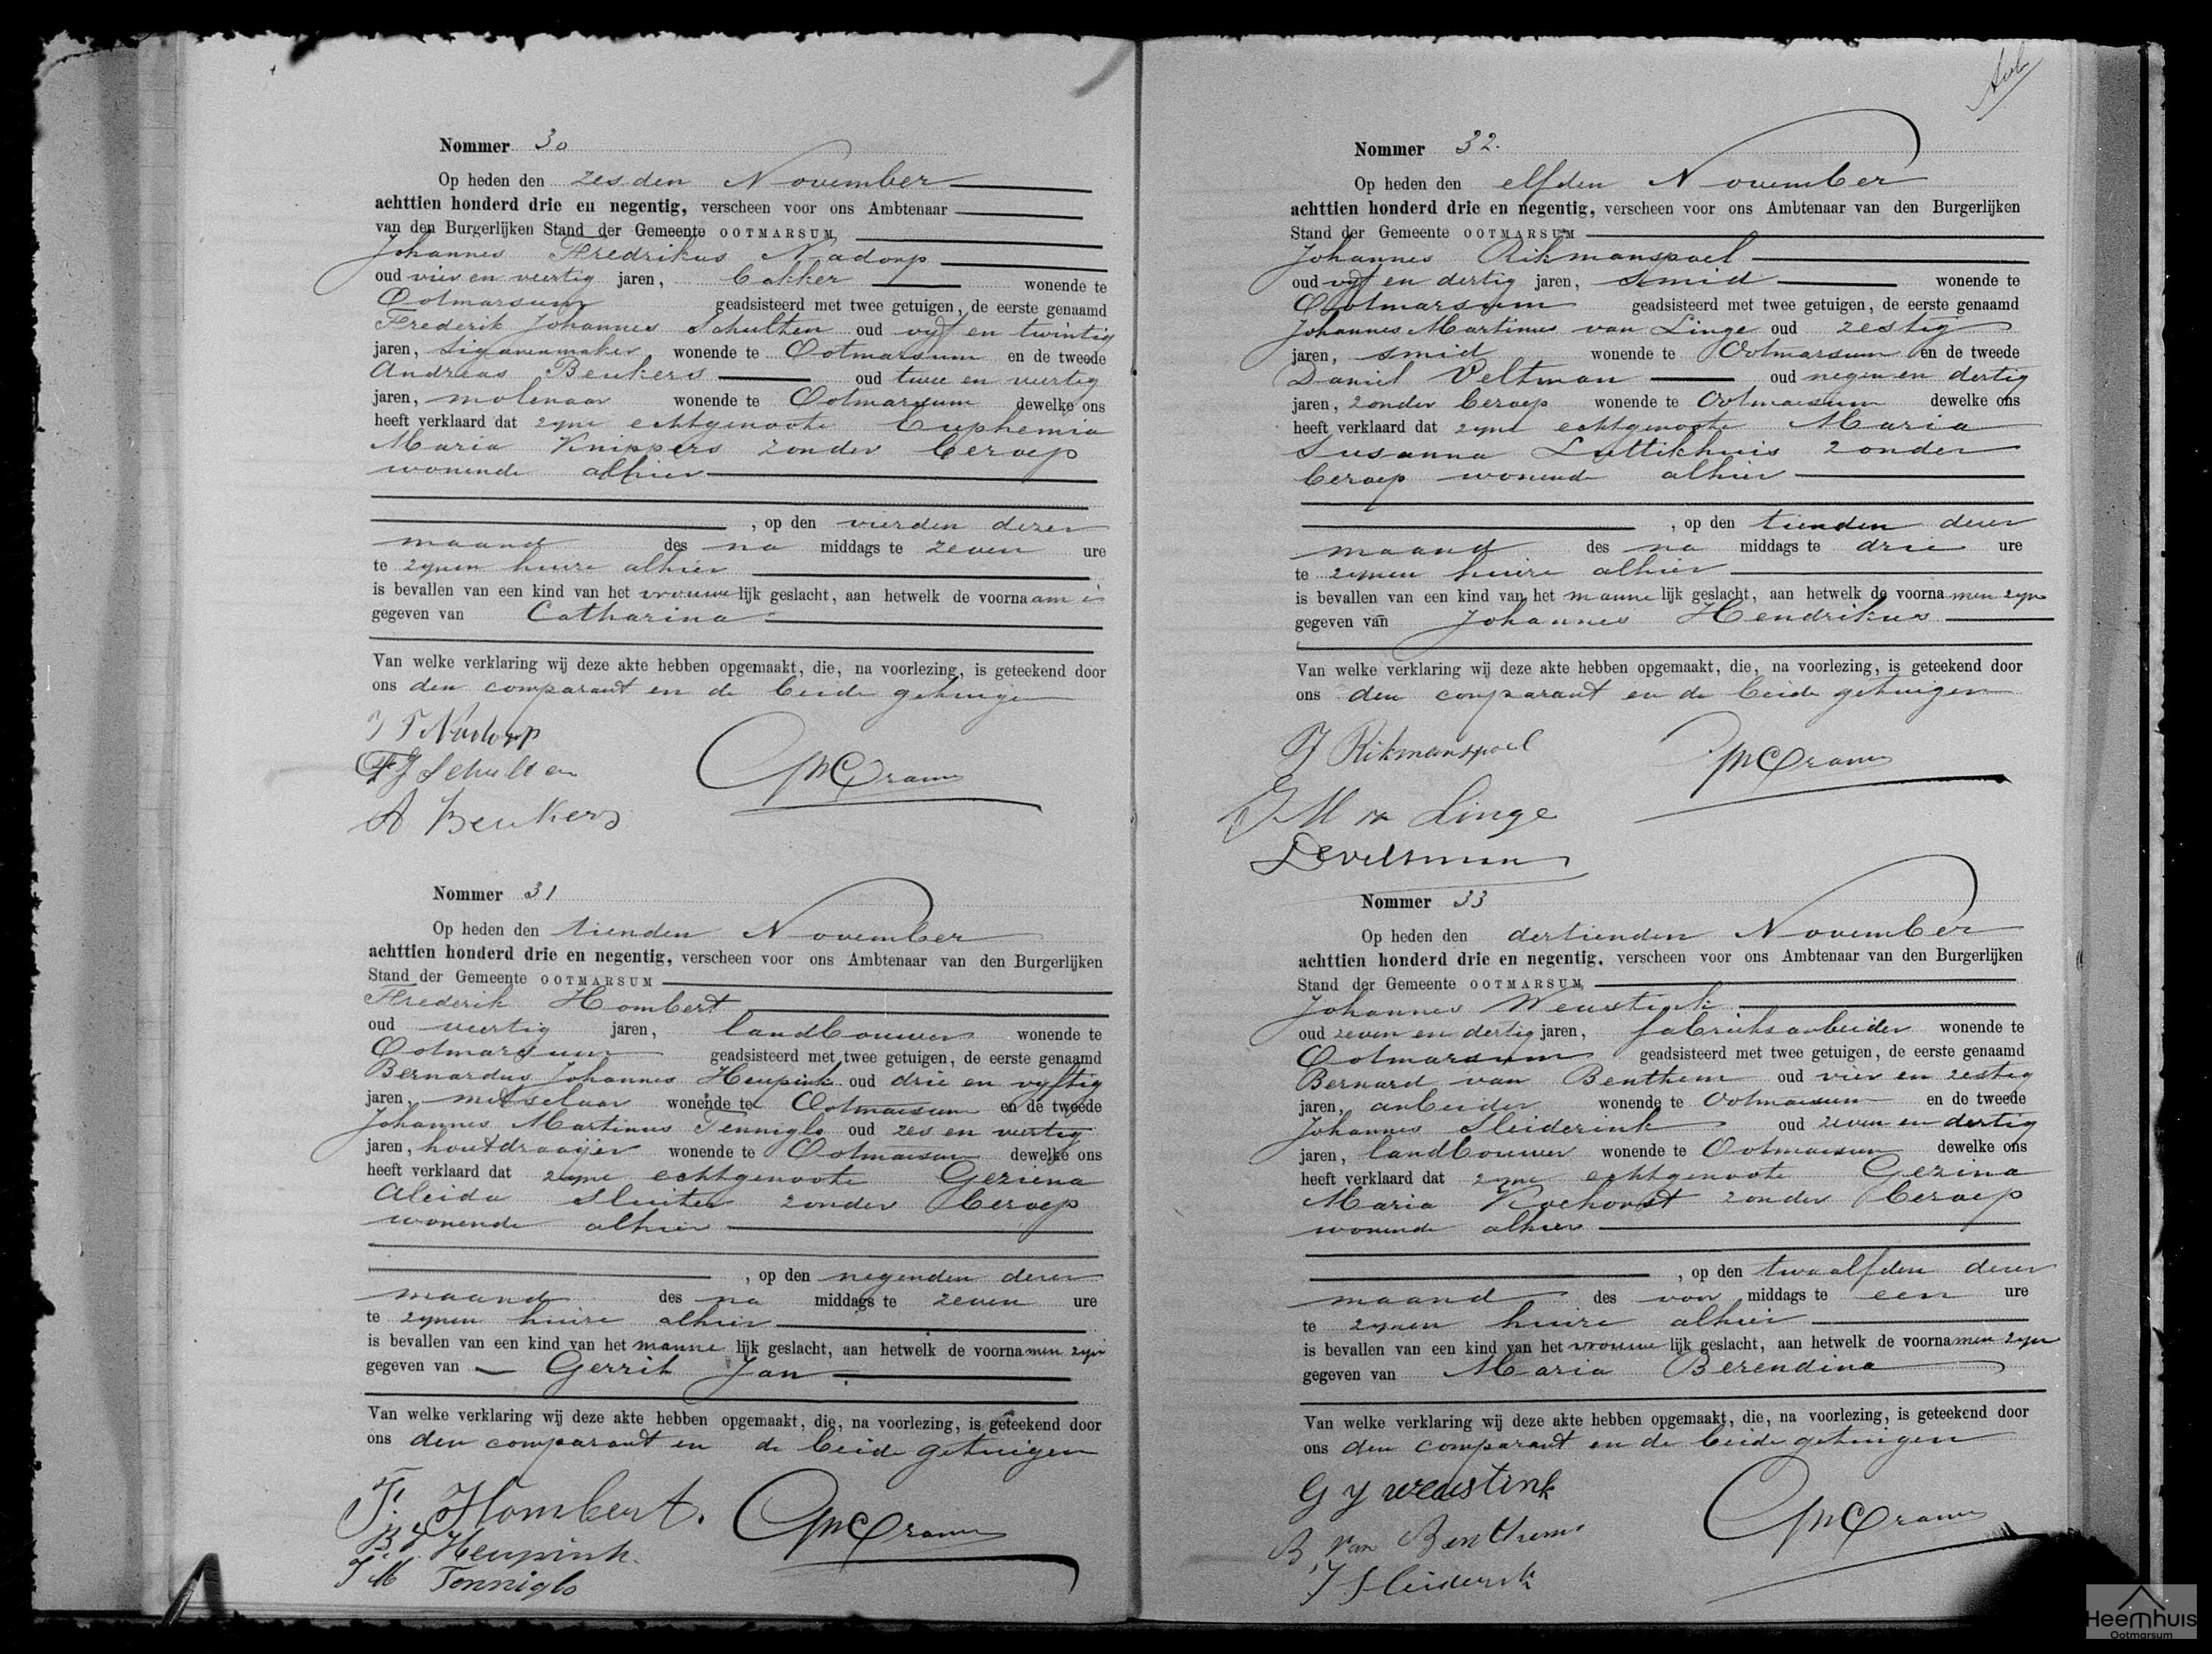 Nommer 30
Op heden den zesden November
achttien honderd drie en negentig, verscheen voor ons Ambtenaar
van den Burgerlijken Stand der Gemeente OOTMARSUM
Johannes Fredrikus Nadorp
oud vier en veertig jaren, bakker wonende te
Ootmarsum geadsisteerd met twee getuigen, de eerste genaamd
Frederik Johannes Schulten oud vyf en twintig
jaren, sigarenmaker wonende te Ootmarsum en de tweede
Andreas Beukers oud twee en veertig
jaren, molenaar wonende te Ootmarsum dewelke ons
heeft verklaard dat zyne echtgenoote Euphemia
Maria Knippers zonder beroep
wonende alhier
, op den vierden dezer
maand des na middags te zeven ure
te zynen huize alhier
is bevallen van een kind van het vrouwelijk geslacht, aan hetwelk de voornaam is
gegeven van Catharina
Van welke verklaring wij deze akte hebben opgemaakt, die, na voorlezing, is geteekend door
ons den comparant en de beide getuigen
J F Nadorp
F J Schulten
A Beukers
Nommer 31
Op heden den tienden November
achttien honderd drie en negentig, verscheen voor ons Ambtenaar van den Burgerlijken
Stand der Gemeente OOTMARSUM
Frederik Hombert
oud veertig jaren, landbouwer wonende te
Ootmarsum geadsisteerd met twee getuigen, de eerste genaamd
Bernardus Johannes Heupink oud drie en vyftig
jaren, metselaar wonende te Ootmarsum en de tweede
Johannes Martinus Tenniglo oud zes en veertig
jaren, houtdraaijer wonende te Ootmarsum dewelke ons
heeft verklaard dat zyne echtgenoote Geziena
Aleida Sluiter zonder beroep
wonende alhier
, op den negenden dezer
maand des na middags te zeven ure
te zynen huize alhier
is bevallen van een kind van het mannelijk geslacht, aan hetwelk de voornamen zyn
gegeven van Gerrit Jan
Van welke verklaring wij deze akte hebben opgemaakt, die, na voorlezing, is geteekend door
ons den comparant en de beide getuigen
F. Hombert.
B J. Heupink.
J M Tenniglo
Nommer 32.
Op heden den elfden November
achttien honderd drie en negentig, verscheen voor ons Ambtenaar van den Burgerlijken
Stand der Gemeente OOTMARSUM
Johannes Rikmanspoel
oud vyf en dertig jaren, smid wonende te
Ootmarsum geadsisteerd met twee getuigen, de eerste genaamd
Johannes Martinus van Linge oud zestig
jaren, smid wonende te Ootmarsum en de tweede
Daniel Veltman oud negen en dertig
jaren, zonder beroep wonende te Ootmarsum dewelke ons
heeft verklaard dat zyne echtgenoote Maria
Susanna Luttikhuis zonder
beroep wonende alhier
, op den tienden dezer
maand des na middags te drie ure
te zynen huize alhier
is bevallen van een kind van het mannelijk geslacht, aan hetwelk de voornamen zyn
gegeven van Johannes Hendrikus
Van welke verklaring wij deze akte hebben opgemaakt, die, na voorlezing, is geteekend door
ons den comparant en de beide getuigen
J Rikmanspoel
J M v Linge
D Veltman
Nommer 33
Op heden den dertienden November
achttien honderd drie en negentig, verscheen voor ons Ambtenaar van den Burgerlijken
Stand der Gemeente OOTMARSUM
Johannes Weustink
oud zeven en dertig jaren, fabrieksarbeider wonende te
Ootmarsum geadsisteerd met twee getuigen, de eerste genaamd
Bernard van Benthem oud vier en zestig
jaren, arbeider wonende te Ootmarsum en de tweede
Johannes Sleiderink oud zeven en dertig
jaren, landbouwer wonende te Ootmarsum dewelke ons
heeft verklaard dat zyne echtgenoote Gezina
Maria Kochorst zonder beroep
wonende alhier
, op den twaalfden dezer
maand des voor middags te een ure
te zynen huize alhier
is bevallen van een kind van het vrouwelijk geslacht, aan hetwelk de voornamen zyn
gegeven van Maria Berendina
Van welke verklaring wij deze akte hebben opgemaakt, die, na voorlezing, is geteekend door
ons den comparant en de beide getuigen
G J Weustink
B van Benthem
J Sleiderink
Heemhuis
Ootmarsum